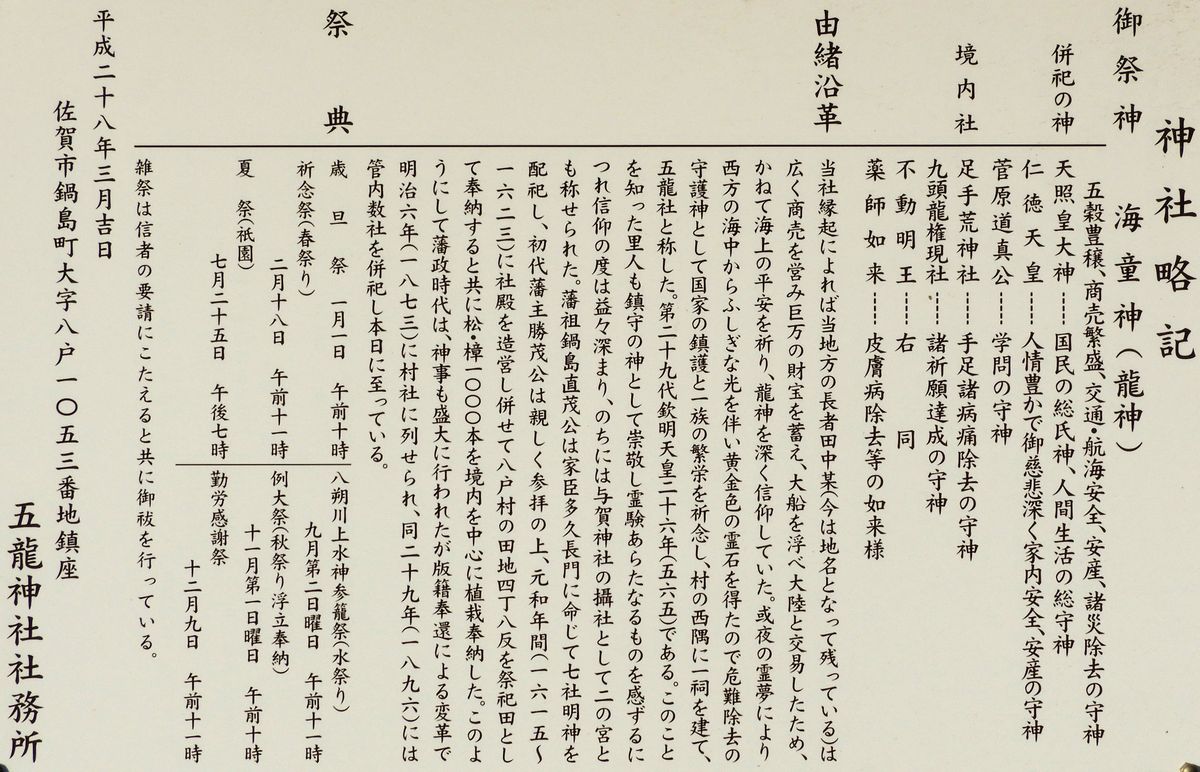 神社略記
御祭神　海童神（龍神）
五穀豊穣、商売繁盛、交通・航海安全、安産、諸災除去の守神
併祀の神　天照皇大神┄┄国民の総氏神、人間生活の総守神
仁徳天皇┄┄人情豊かで御慈悲深く家内安全、安産の守神
菅原道真公┄┄学問の守神
境内社　足手荒神社┄┄手足諸病痛除去の守神
九頭龍権現社┄┄諸祈願達成の守神
不動明王┄┄右　同
薬師如来┄┄皮膚病除去等の如来様
由緒沿革　当社縁起によれば当地方の長者田中某（今は地名となって残っている）は
広く商売を営み巨万の財宝を蓄え、大船を浮べ大陸と交易したため、
かねて海上の平安を祈り、龍神を深く信仰していた。或夜の霊夢により
西方の海中からふしぎな光を伴い黄金色の霊石を得たので危難除去の
守護神として国家の鎮護と一族の繁栄を祈念し、村の西隅に一祠を建て、
五龍社と称した。第二十九代欽明天皇二十六年（五六五）である。このこと
を知った里人も鎮守の神として崇敬し霊験あらたなるものを感ずるに
つれ信仰の度は益々深まり、のちには与賀神社の攝社として二の宮と
も称せられた。藩祖鍋島直茂公は家臣多久長門に命じて七社明神を
配祀し、初代藩主勝茂公は親しく参拝の上、元和年間（一六一五～
一六二三）に社殿を造営し併せて八戸村の田地四丁八反を祭祀田とし
て奉納すると共に松・樟一〇〇〇本を境内を中心に植栽奉納した。このよ
うにして藩政時代は、神事も盛大に行われたが版籍奉還による変革で
明治六年（一八七三）に村社に列せられ、同二十九年（一八九六）には
管内数社を併祀し本日に至っている。
祭典　歳旦祭　一月一日　午前十時
祈念祭（春祭り）
二月十八日　午前十一時
夏　祭（祇園）
七月二十五日　午後七時
八朔川上水神参籠祭（水祭り）
九月第二日曜日　午前十一時
例大祭（秋祭り浮立奉納）
十一月第一日曜日　午前十時
勤労感謝祭
十二月九日　午前十一時
雑祭は信者の要請にこたえると共に御祓を行っている。
平成二十八年三月吉日
佐賀市鍋島町大字八戸一〇五三番地鎮座
五龍神社社務所